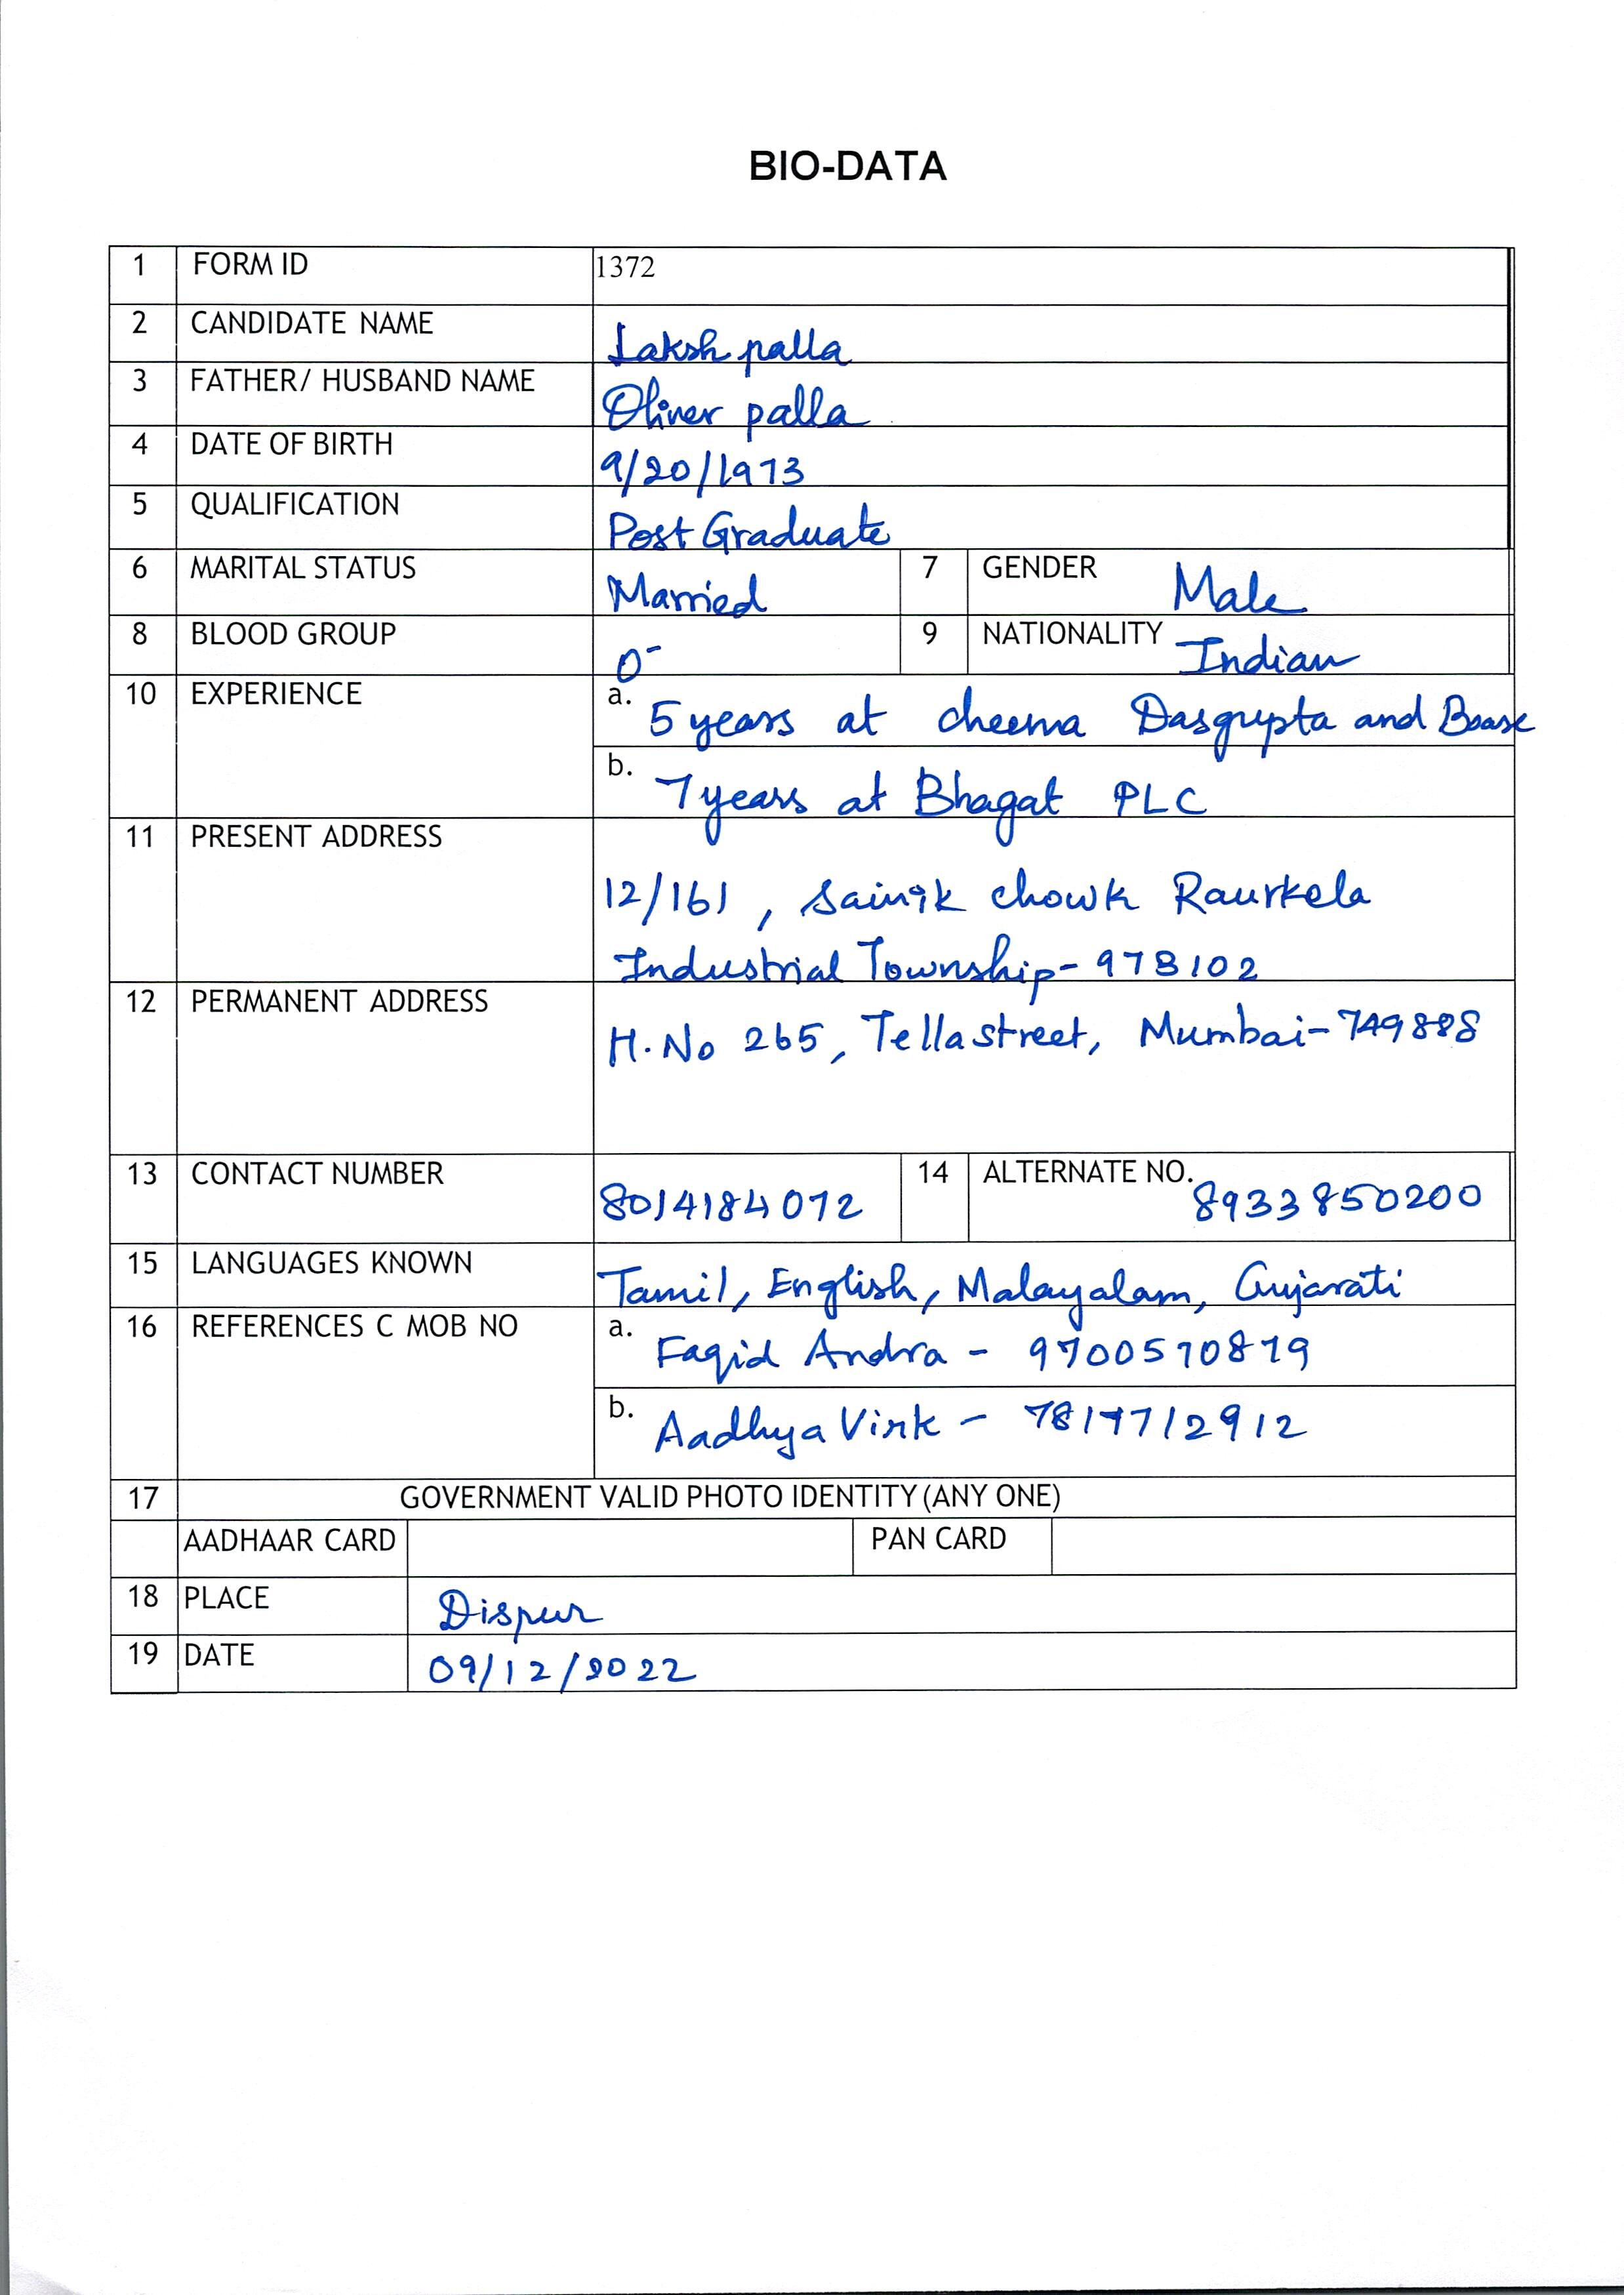 BIO-DATA
1 FORM ID 1372
2 CANDIDATE NAME Laksh palla
3 FATHER/ HUSBAND NAME Oliver palla
4 DATE OF BIRTH 9/20/1973
5 QUALIFICATION Post Graduate
6 MARITAL STATUS Married 7 GENDER Male
8 BLOOD GROUP O- 9 NATIONALITY Indian
10 EXPERIENCE a. 5 years at cheema Dasgupta and
b. 7 years at Bhagat PLC
11 PRESENT ADDRESS
12/161, Sainik chowk Raurkela
Industrial Township-978102
12 PERMANENT ADDRESS H.No 265, Tella street, Mumbai-749888
13 CONTACT NUMBER 8014184072 14 ALTERNATE NO. 8933850200
15 LANGUAGES KNOWN Tamil, English, Malayalam, Gujarati
16 REFERENCES C MOB NO a. Faqid Andra - 9700570879
b. Aadhya Virk - 7817712912
17 GOVERNMENT VALID PHOTO IDENTITY (ANY ONE)
AADHAAR CARD PAN CARD
18 PLACE Dispur
19 DATE 09/12/2022